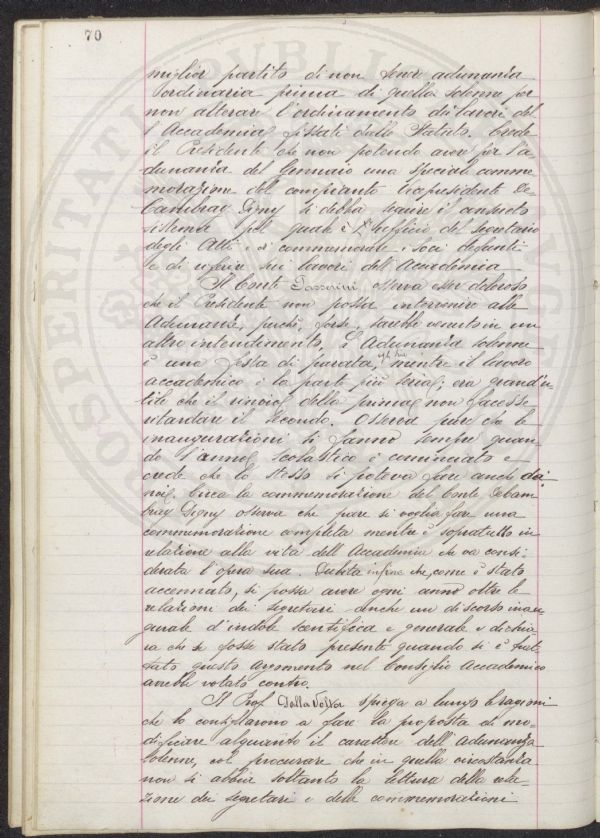 70
miglior partito di non tener adunanza
ordinaria prima di quella solenne per
non alterare l'ordinamento dei lavori del
l'Accademia fissati dallo Statuto. Crede
il Presidente che non potendo avere per l'a-
dunanza del Gennaio una speciale comme
morazione del compianto Vicepresidente De
Cambray Digny si debba seguire il consueto
sistema pel quale è ufficio del Segretario
degli Atti di commemorare i soci defunti
e di riferire sui lavori dell'Accademia.
Il Conte Passerini, osserva esser doloroso
che il Presidente non possa intervenire alle
Adunanze, perchè, forse, sarebbe venuto in un
altro intendimento, L'Adunanza solenne
è una festa di parata, mentre il lavoro
accademico è la parte più seria; era grand'u
tile che il rinvio della prima non facesse
ritardare il secondo. Osserva pure che le
inaugurazioni si fanno sempre quan-
do l'anno scolastico è cominciato e
crede che lo stesso si poteva fare anche da
noi. Circa la commemorazione del Conte Decam
bray Digny osserva che pare si voglia fare una
commemorazione completa mentre è sopratutto in
relazione alla vita dell'Accademia che va consi
derata l'opera sua. Dubita infine che, come è stato
accennato, si possa avere ogni anno oltre le
relazioni dei segretari anche un discorso inau
gurale d'indole scientifica e generale e dichia-
ra che se fosse stato presente quando si è trat
tato questo argomento nel Consiglio Accademico
avrebbe votato contro.
Il Prof. Dalla Volta spiega a lungo le ragioni
che lo consigliarono a fare la proposta di mo-
dificare alquanto il carattere dell'Adunanza
solenne, col procurare che in quella circostanza
non si abbia soltanto la lettura della rela-
zione dei segretari e delle commemorazioni